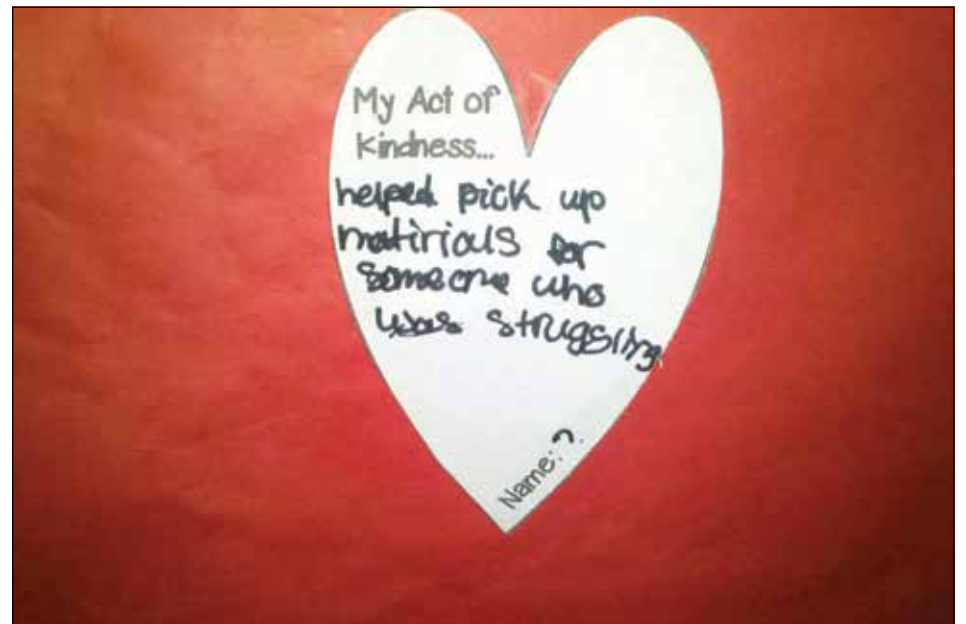 My Act of
Kindness...
helped pick up
matirials for
someone who
was struggling.
Name: ?